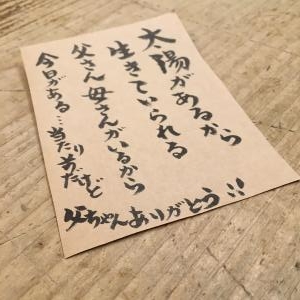 太陽があるから
生きていられる
父さん 母さんがいるから
今日がある…当たり
だけど
父ちゃんありがとう!!